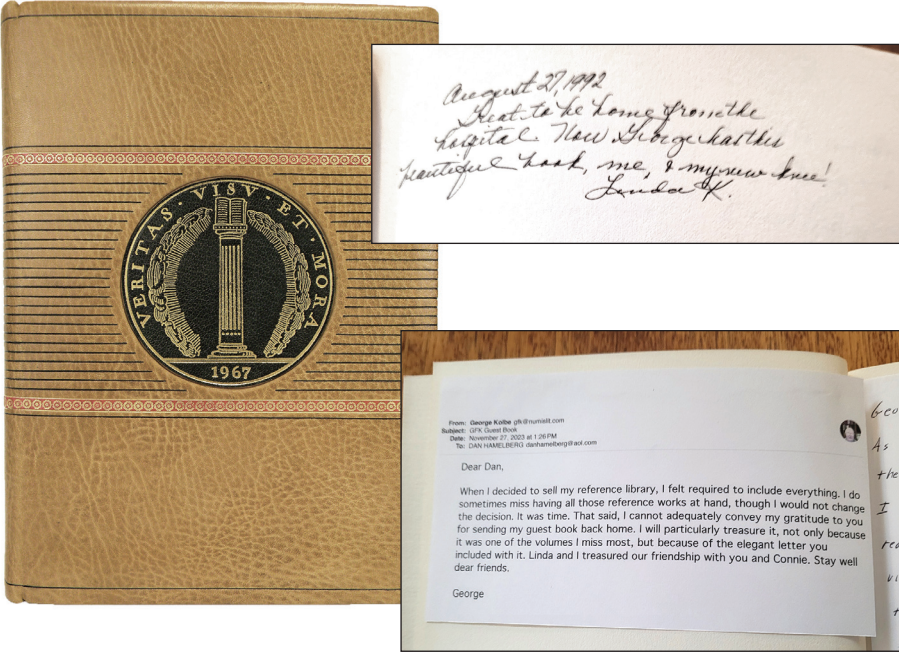 VERITAS · VISV · ET · MORA
1967
August 27, 1992
Great to be home from the
hospital Now George has this
beautiful book, me, & my new knee!
Linda K.
From: George Kolbe gfk@numislit.com
Subject: GFK Guest Book
Date: November 27, 2023 at 1:26 PM
To: DAN HAMELBERG danhamelberg@aol.com
Dear Dan,
When I decided to sell my reference library, I felt required to include everything. I do
sometimes miss having all those reference works at hand, though I would not change
the decision. It was time. That said, I cannot adequately convey my gratitude to you
for sending my guest book back home. I will particularly treasure it, not only because
it was one of the volumes I miss most, but because of the elegant letter you
included with it. Linda and I treasured our friendship with you and Connie. Stay well
dear friends.
George
Geo
As
the
I
rea
vi